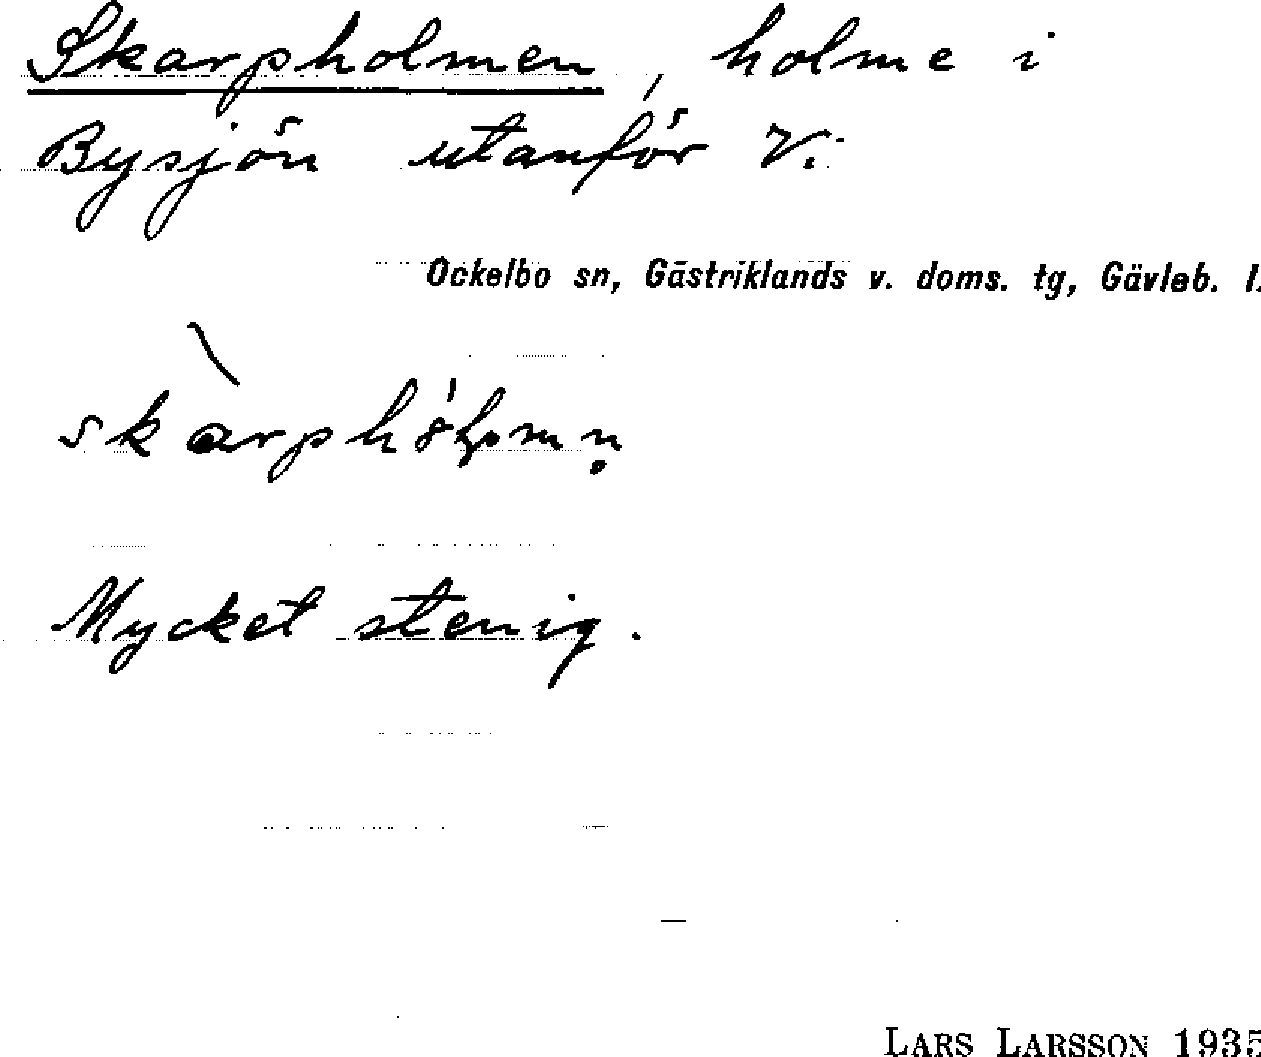 Skarpholmen, holme i
Bysjön utanför V.
Ockelbo sn, Gästriklands v. doms. tg, Gävleb. l.
Mycket stenig.
LARS LARSSON 1935